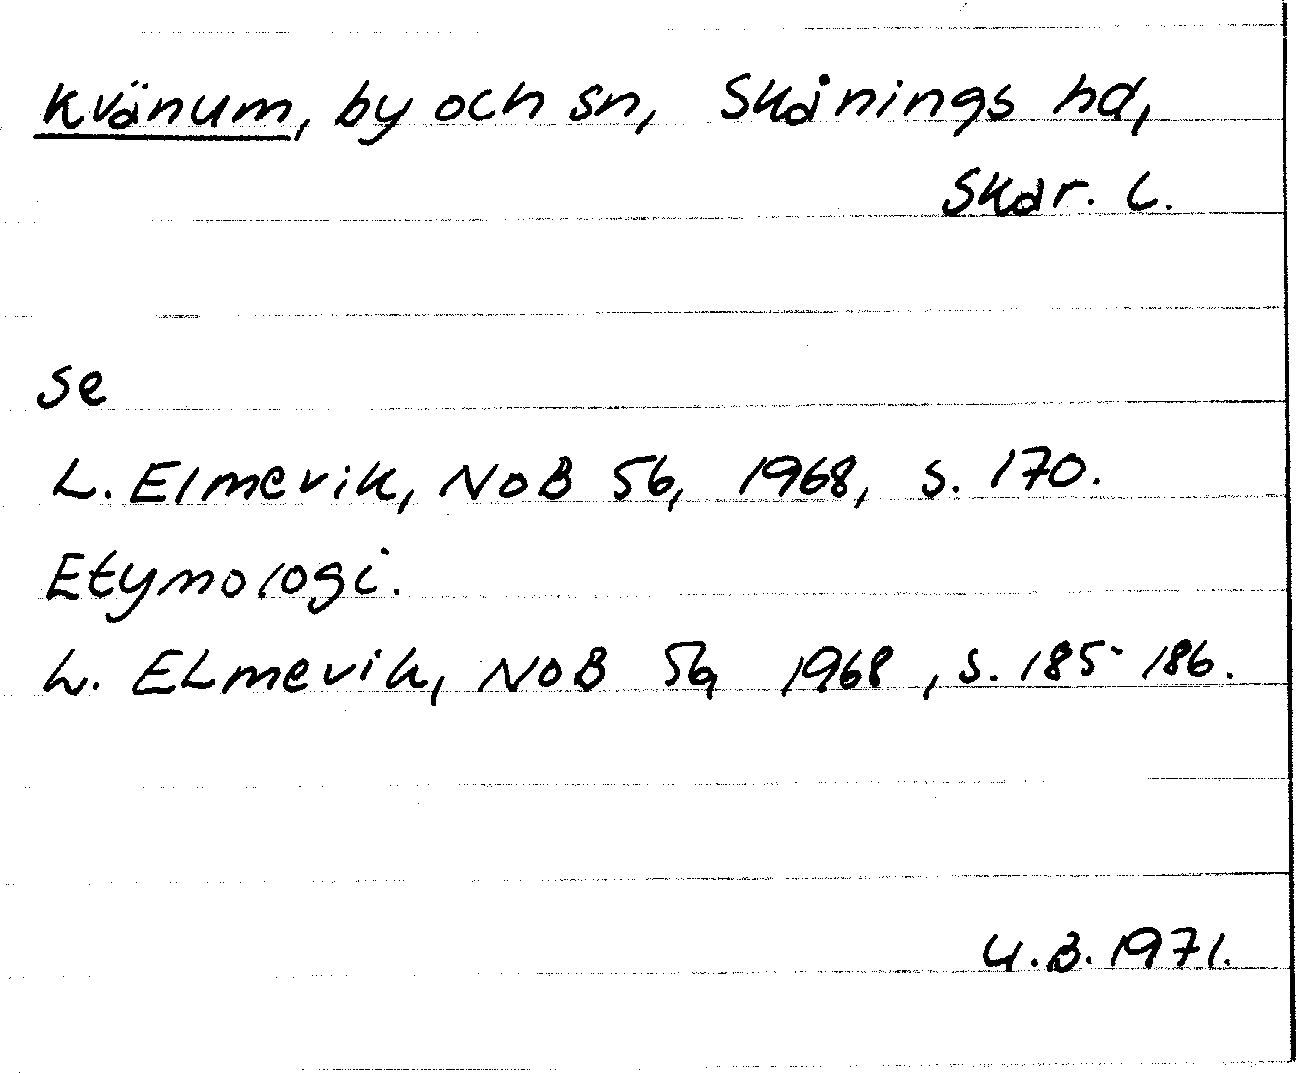 Kvänum, by och sn, Skånings hd,
Skar. L.
se
L. Elmevik, NoB 56, 1968, s. 170.
Etymologi.
L. Elmevik, NoB 56, 1968, s. 185-186.
U.B. 1971.